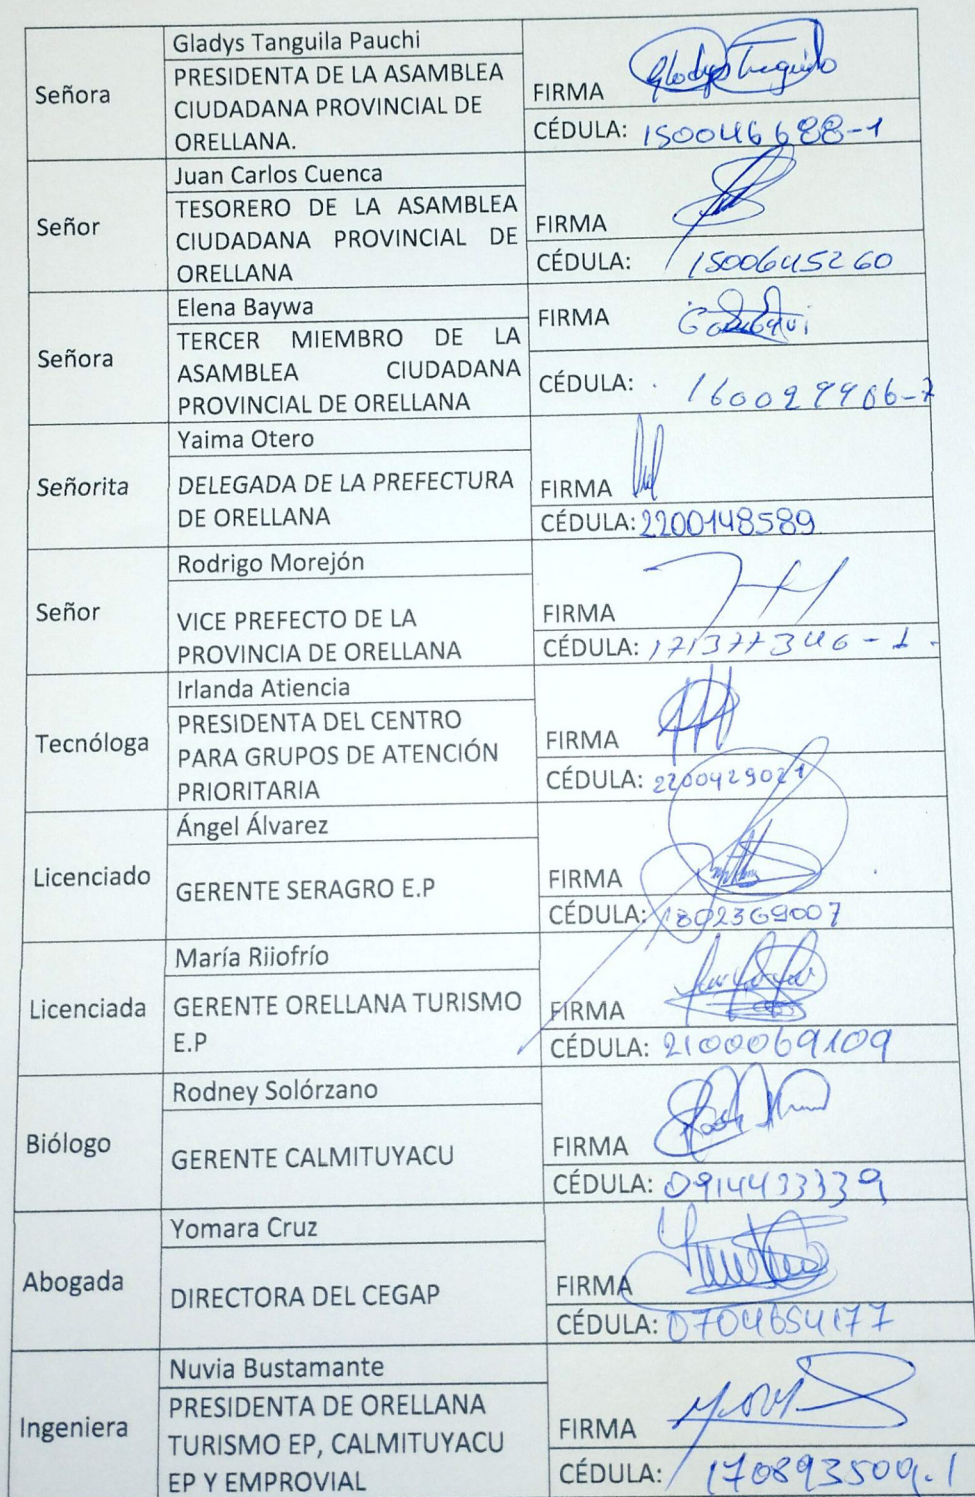 Señora
Gladys Tanguila Pauchi
PRESIDENTA DE LA ASAMBLEA
CIUDADANA PROVINCIAL DE
ORELLANA.
FIRMA
CÉDULA: 150046688-1
Señor
Juan Carlos Cuenca
TESORERO DE LA ASAMBLEA
CIUDADANA PROVINCIAL DE
ORELLANA
FIRMA
CÉDULA: 1500645260
Señora
Elena Baywa
TERCER MIEMBRO DE LA
ASAMBLEA CIUDADANA
PROVINCIAL DE ORELLANA
FIRMA
CÉDULA:
Señorita
Yaima Otero
DELEGADA DE LA PREFECTURA
DE ORELLANA
FIRMA
CÉDULA: 2200148589
Señor
Rodrigo Morejón
VICE PREFECTO DE LA
PROVINCIA DE ORELLANA
FIRMA
CÉDULA: 171377346-1
Tecnóloga
Irlanda Atiencia
PRESIDENTA DEL CENTRO
PARA GRUPOS DE ATENCIÓN
PRIORITARIA
FIRMA
CÉDULA: 2200429021
Licenciado
Ángel Álvarez
GERENTE SERAGRO E.P
FIRMA
CÉDULA: 1802369007
Licenciada
María Riiofrío
GERENTE ORELLANA TURISMO
E.P
FIRMA
CÉDULA:
Biólogo
Rodney Solórzano
GERENTE CALMITUYACU
FIRMA
CÉDULA: 0914433339
Abogada
Yomara Cruz
DIRECTORA DEL CEGAP
FIRMA
CÉDULA: 0704654177
Ingeniera
Nuvia Bustamante
PRESIDENTA DE ORELLANA
TURISMO EP, CALMITUYACU
EP Y EMPROVIAL
FIRMA
CÉDULA: 170893509-1